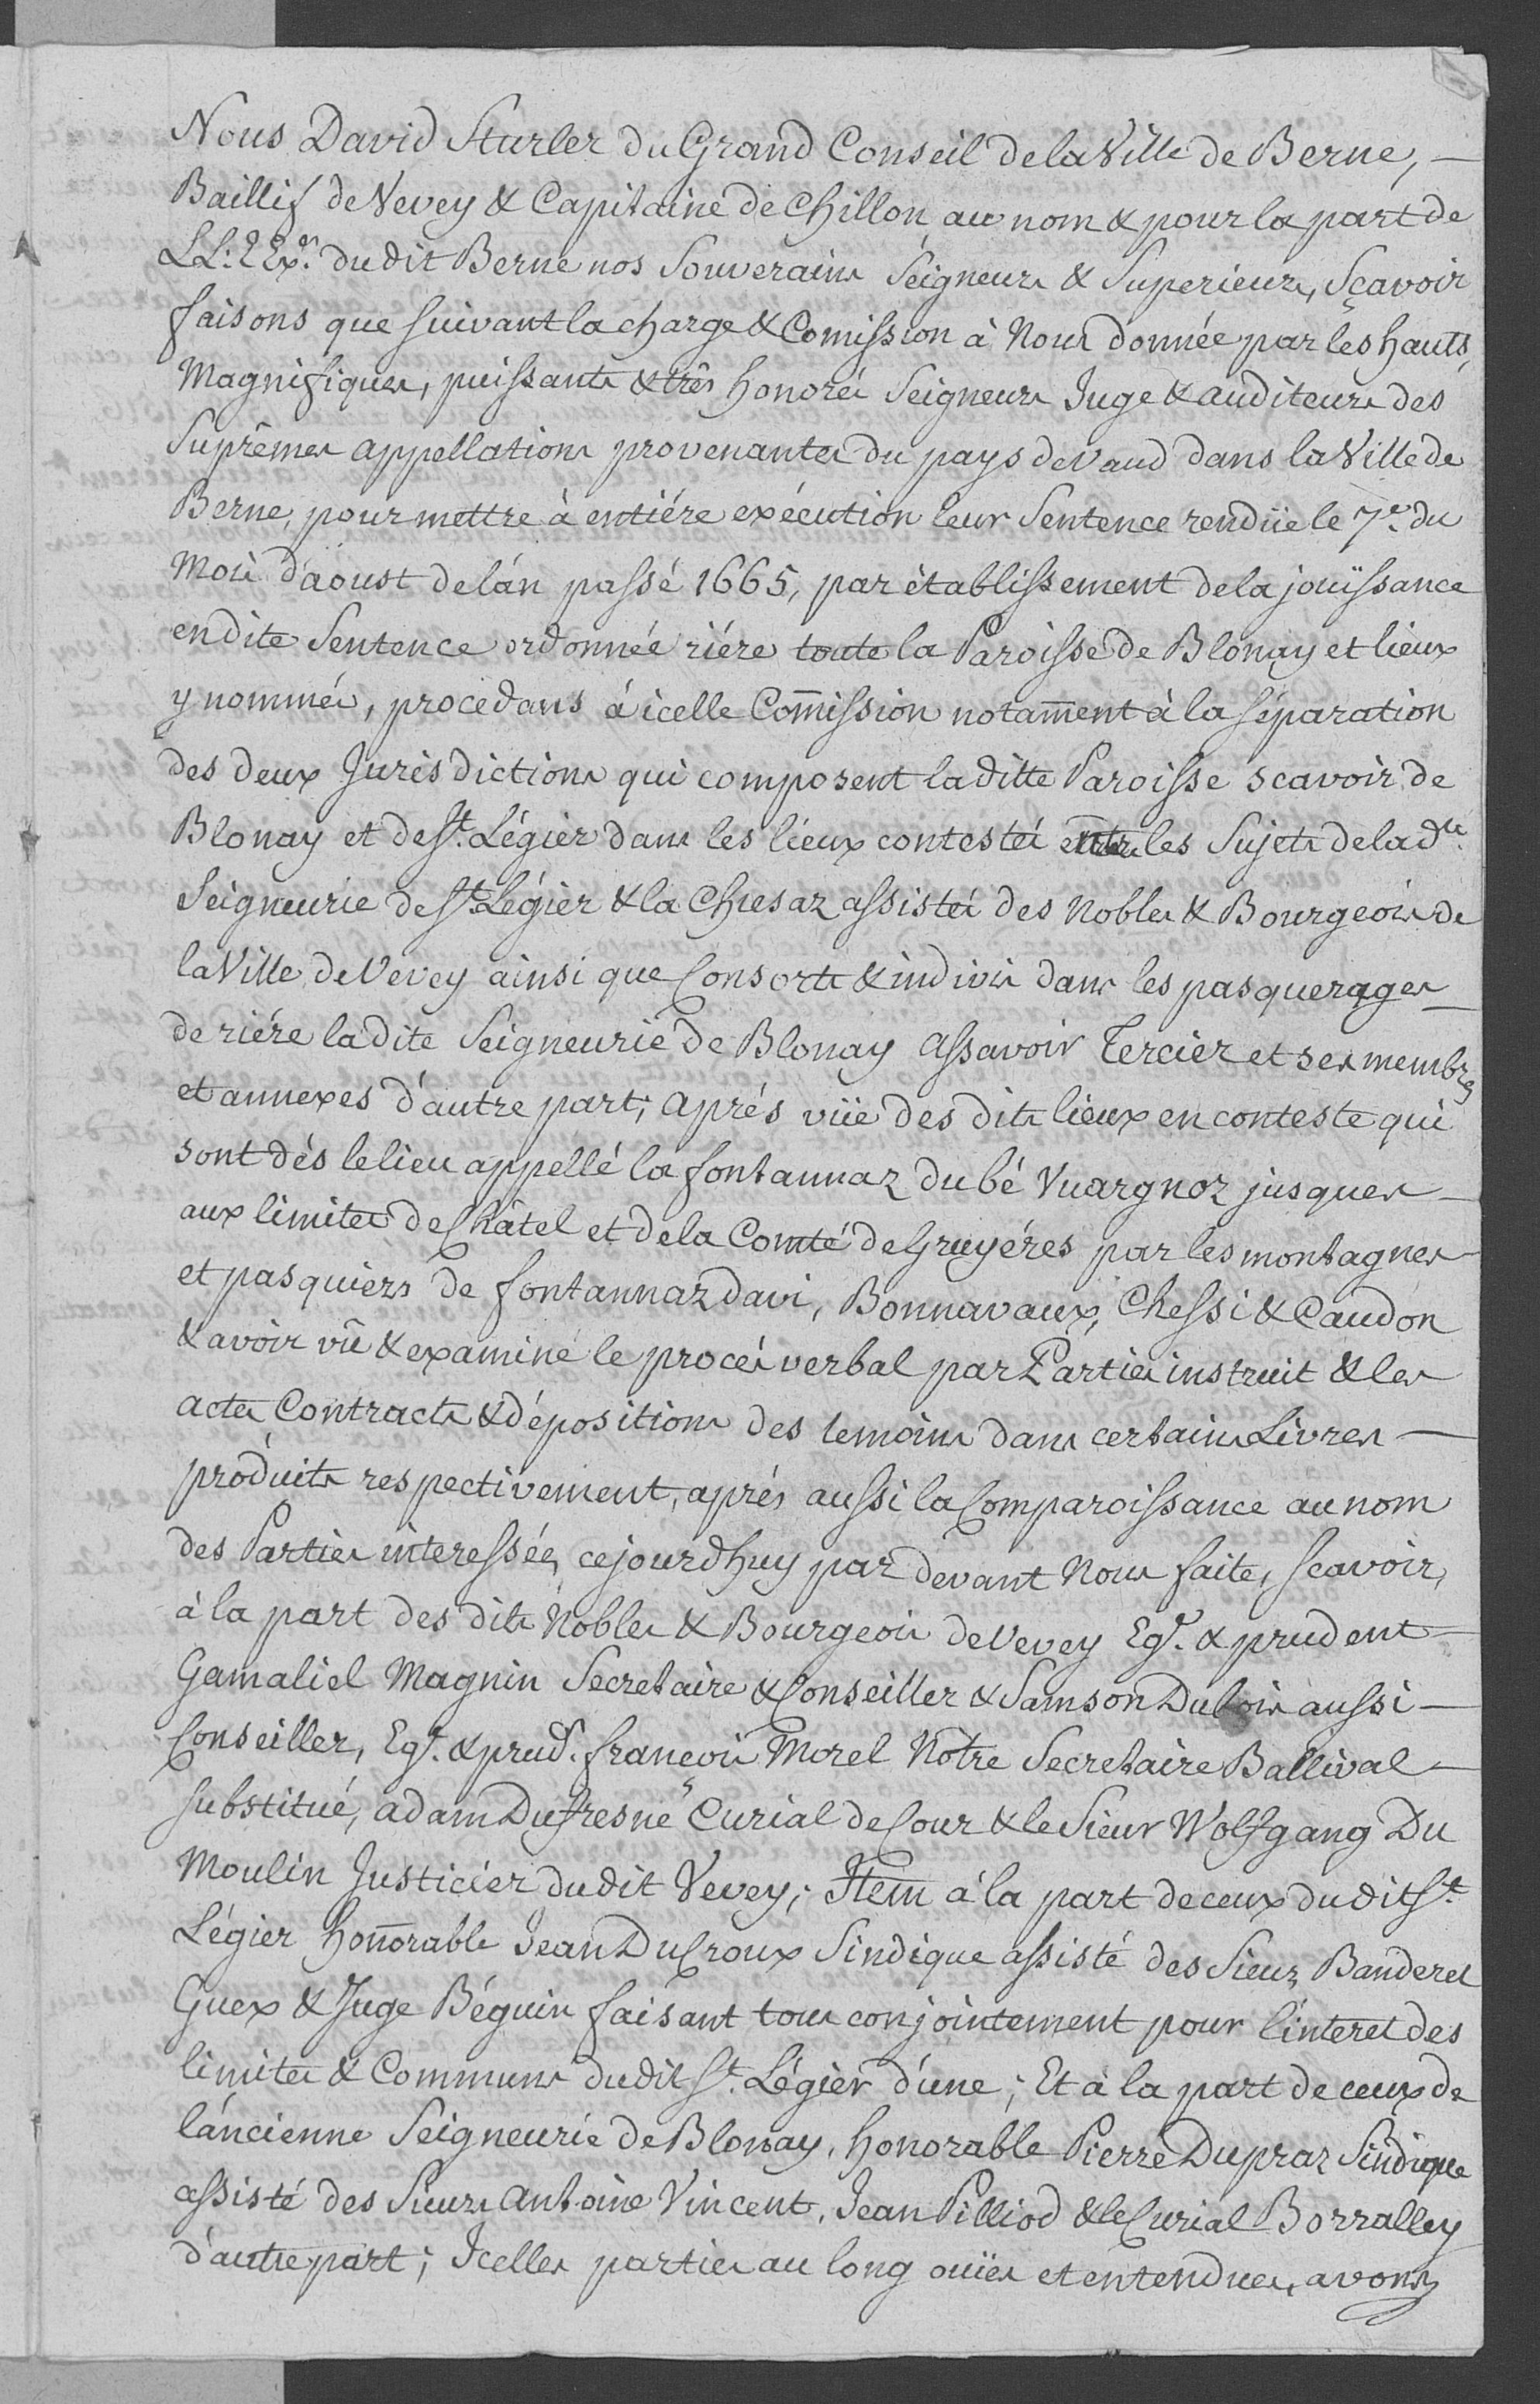 Nous David Sturler du Grand Conseil de la Ville de Berne, —
Baillif de Vevey & Capitaine de Chillon au nom & pour la part de
LL: EExces. du dit Berne nos Souverains Seigneurs & Superieurs, Sçavoir
faisons que suivant la charge & Comission à Nous donnée par les hauts,
Magnifiques, puissants & très honorés Seigneurs Juge & auditeurs des
Suprêmes appellations provenantes du pays de Vaud dans la Ville de
Berne, pour mettre à entiére exécution leur Sentence rendüe le 7e. du
Mois d'aoust de l'an passé 1665, par ètablissement de la joüissance
en dite Sentence ordonnée riére toute la Paroisse de Blonay et lieux
y nommés, procedans à icelle Com̄ission notam̄ent à la séparation
des deux Jurisdictions qui composent la ditte Paroisse scavoir de
Blonay et de St. Légier dans les lieux contestés entre les Sujets de la dte.
Seigneurie de St. Légier & la Chiesaz assistés des Nobles & Bourgeois de
la Ville de Vevey ainsi que Consorts & indivis dans les pasquerages —
de riére la dite Seigneurie de Blonay assavoir Tercier et ses membres
et annexes d'autre part; aprés vüe des dits lieux en conteste qui
sont dès le lieu appellé la fontannaz du bé Vuargnoz jusques —
aux limites de Châtel et de la Comté de Gruyéres par les montagnes —
et pasquiers de fontannaz davi, Bonnavaux, Chessi & Caudon
& avoir vû & examiné le procés verbal par Parties instruit & les
actes Contracts & dépositions des temoins dans certains Livres —
produits respectivement, aprés aussi la Comparoissance au nom
des Parties interessées, cejourdhuy par devant Nous faite, scavoir,
à la part des dits Nobles & Bourgeois de Vevey Egr. & prudent —
Gamaliel Magnin Secretaire & Conseiller & Samson Dubois aussi —
Conseiller, Egr. & prudt. françois Morel Nôtre Secretaire Ballival —
substitué, adam Dufresne Curial de Cour & le Sieur Wolfgang Du
Moulin Justicier du dit Vevey; Item à la part de ceux du dit St.
Légier hon̄orable Jean DuCroux Sindique assisté des Sieurs Banderet
Guex & Juge Béguin faisant tous conjointement pour l'interet des
limites & Communs du dit St. Légier d'une; Et à la part de ceux de
l'ancienne Seigneurie de Blonay, honorable Pierre Dupraz Sindique
assisté des Sieurs Antoine Vincent, Jean Pilliod & le Curial Borralley
d'autre part; Icelles parties au long ouïes et entendues, avons